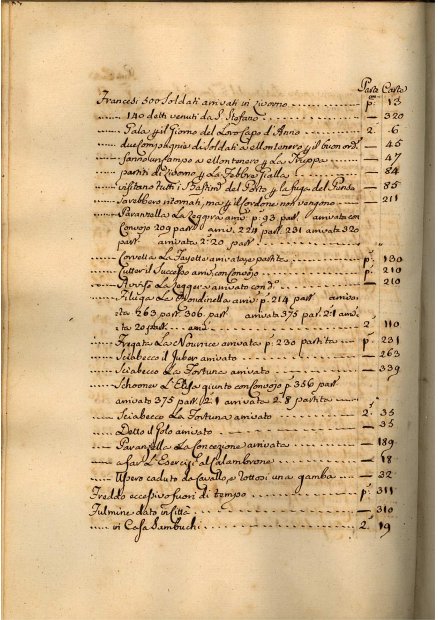 Parte Carte
Francesi 500 Soldati arrivati in Livorno p.ª 13
140 detti venuti da S. Stefano — 320
Gala p il Giorno del Loro Capo d'Anno 2. 6
due Compagnie di Soldati a Montenero p il buon ord. — 45
fanno un Campo a Montenero p la Truppa — 47
partiti di Livorno p La Febbre Gialla — 84
visitano tutti i Bastim.ti del Porto p la fuga del — 85
Sarebbero ritornati, ma p il Cordone non vengono — 211
Paranzella La Leggera arriv. p.ª 93 part. arrivata con
Convojo 209 part. arriv. 224 part. 231 arrivata 320
part. arrivata 2.ª 20 part.
Corvetta La Fajette arrivata, e partita p.ª 180
Cutter il Successo arriv. con Convojo p.ª 210
Avviso La Leggera arrivato con d.º — 210
Filuga La Rondinella arriv. p.ª 214 part. arriv.
ita 263 part. 306 part. arrivata 375 par. 2.ª arriv.
ita 20 part. arriv. 2.ª 110
Fregata La Nourrice arrivata p.ª 230 partita p.ª 231
Sciabecco il Juber arrivato — 263
Sciabecco La Fortuna arrivato — 339
Schooner L'Elisa giunto con Convojo p.ª 356 part.
arrivato 375 part. 2.ª 1 arrivato 2.ª 8 partita
Sciabecco La Fortuna arrivato 2.ª 35
Detto il Golo arrivato — 35
Paranzella La Concezione arrivata — 189
a far L'Esercizj al Calambrone — 18
Usero caduto da Cavallo, e rottosi una gamba — 32
Freddo eccessivo fuori di tempo p.ª 311
Fulmine dato in Città — 310
in Casa Sambuchi 2.ª 19